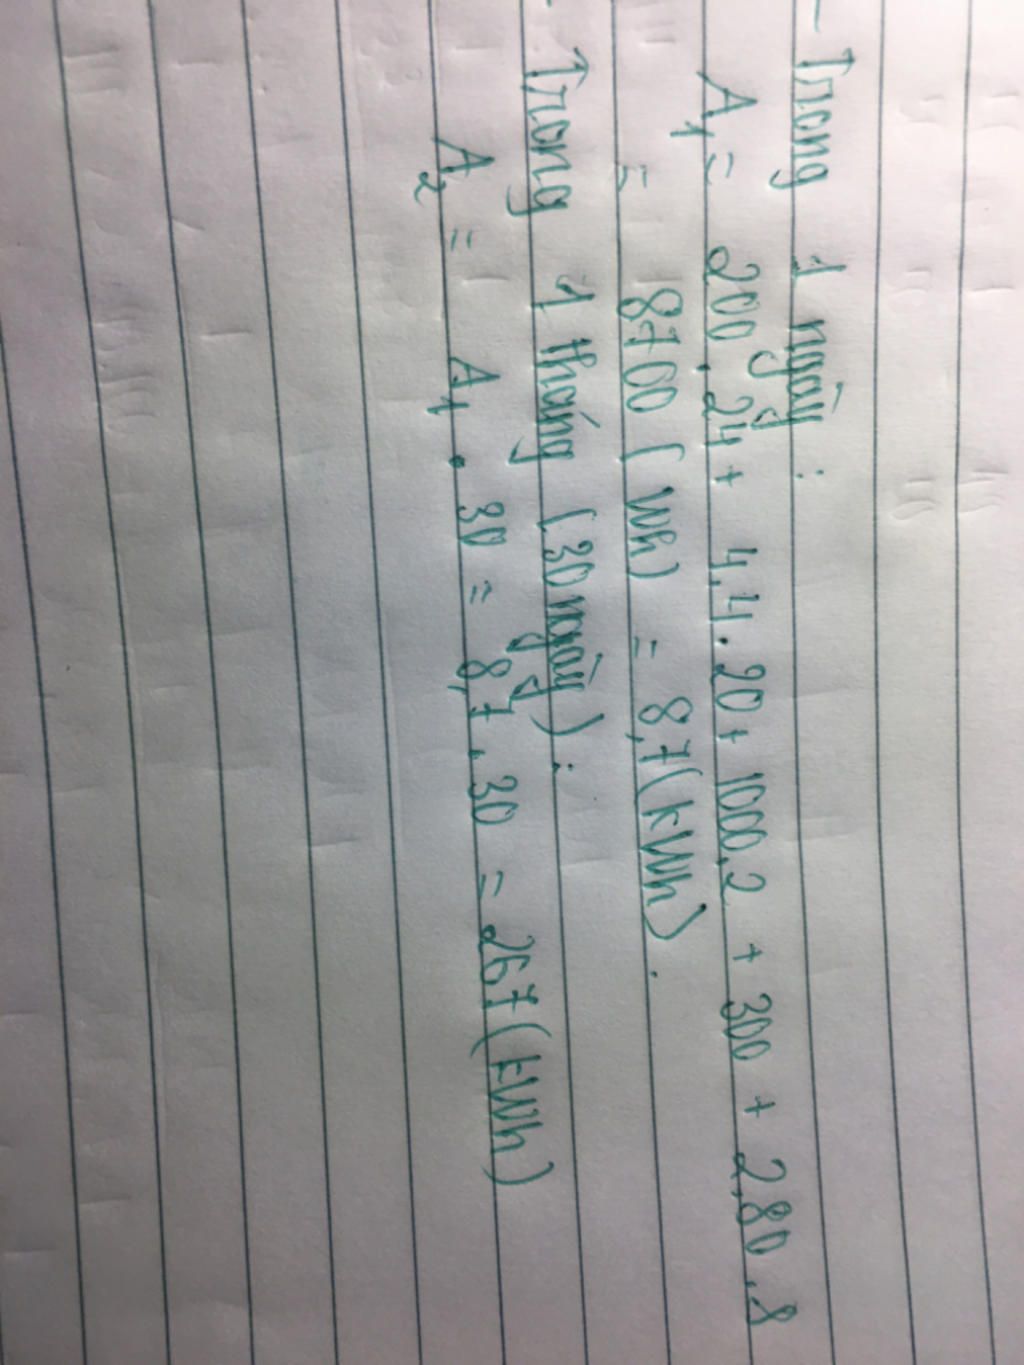 - Trong 1 ngày :
A₁ = 200 . 24 + 4.4 . 20 + 1000.2 + 300 + 2.80 .8
= 8700 ( Wh) = 8,7 (kWh) .
- Trong 1 tháng (30 ngày) :
A₂ = A₁ . 30 = 8,7 . 30 = 267 (kWh)